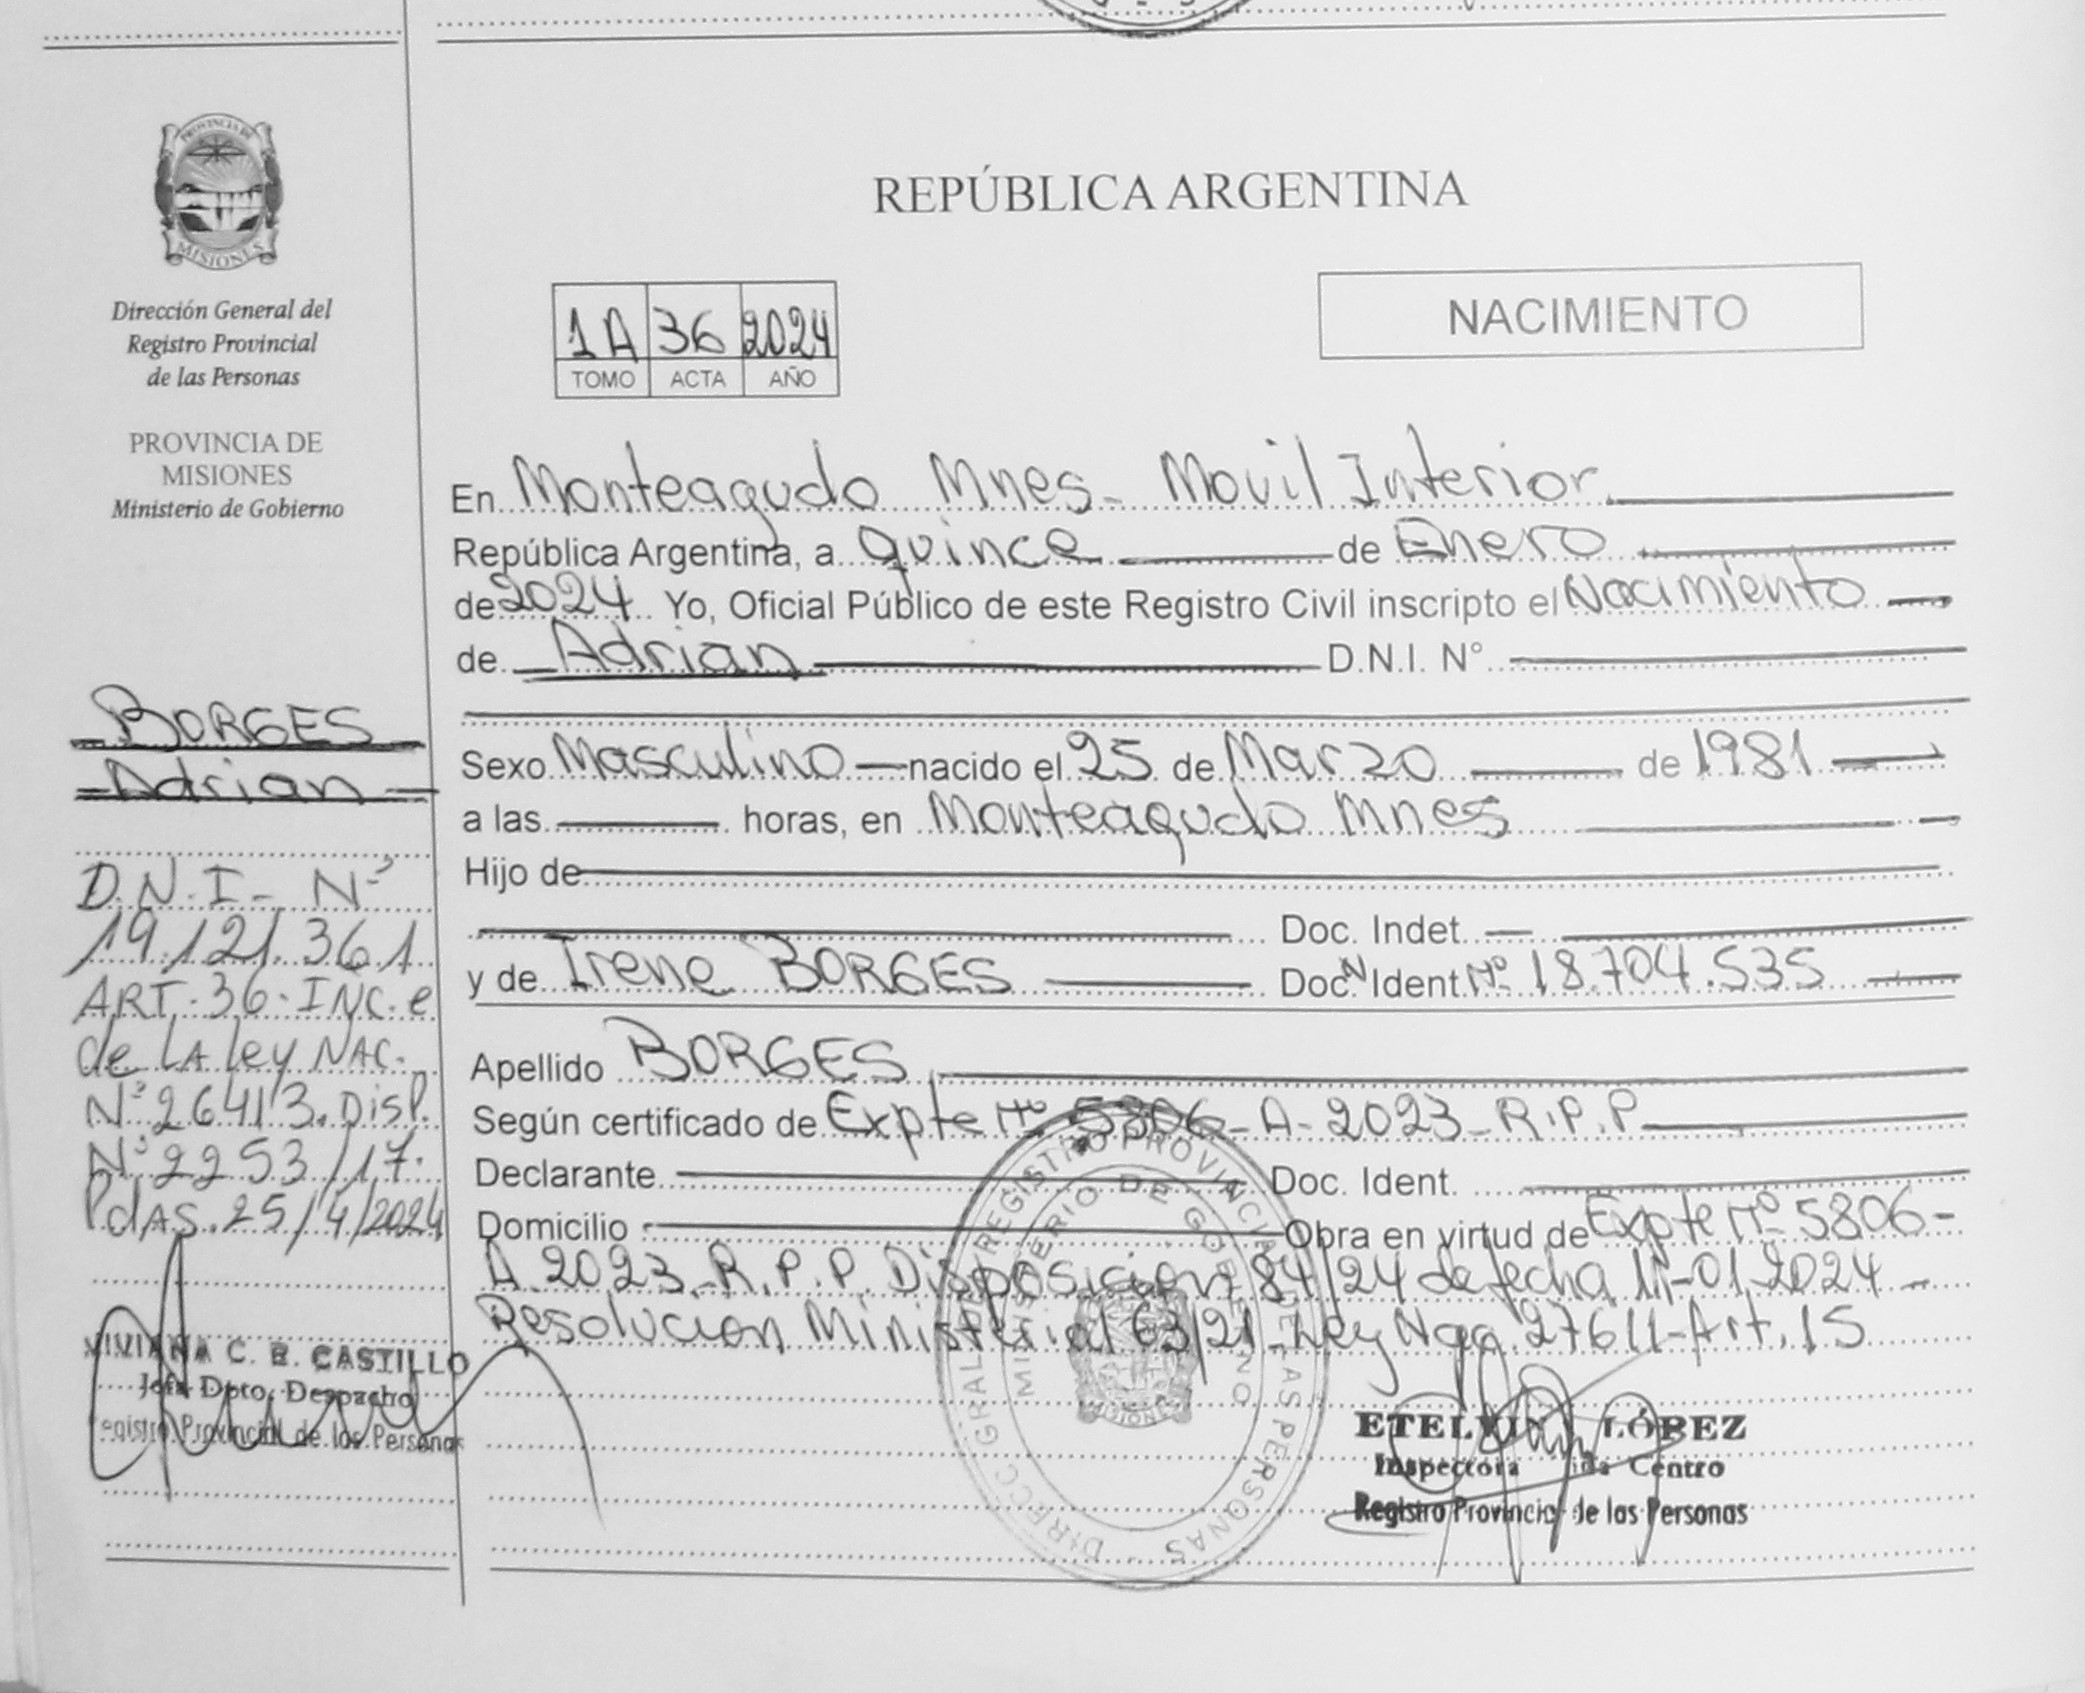 PROVINCIA DE
MISIONES
Dirección General del
Registro Provincial
de las Personas
PROVINCIA DE
MISIONES
Ministerio de Gobierno
BORGES
Adrian
D.N.I- Nº
19.121.361
ART. 36. INC. e
de LA Ley NAC.
Nº 26413. Disp.
Nº 2253/17.
PdAS. 25/4/2024
VIVIANA C. B. CASTILLO
Jefa Dpto. Despacho
Registro Provincial de las Personas
REPÚBLICA ARGENTINA
1A 36 2024
TOMO ACTA AÑO
NACIMIENTO
En Monteagudo Mnes- Movil Interior.
República Argentina, a quince de Enero
de 2024 Yo, Oficial Público de este Registro Civil inscripto el Nacimiento
de Adrian D.N.I. N°
Sexo Masculino nacido el 25 de Marzo de 1981
a las horas, en Monteagudo Mnes
Hijo de
Doc. Indet.
y de Irene BORGES Doc. N Ident. Nº 18.704.535
Apellido BORGES
Según certificado de Expte Nº 5806-A-2023-R.P.P
Declarante Doc. Ident.
Domicilio Obra en virtud de Expte Nº 5806-
A.2023.R.P.P. Disposicion 84/24 de fecha 11-01-2024
Resolucion Ministerial 63/21-Ley Nac. 27611-Art. 15
DIRECC GRAL DEL REGISTRO PROVINCIAL DE LAS PERSONAS
MINISTERIO DE GOBIERNO
MISIONES
ETELVINA LÓPEZ
Inspectora Centro
Registro Provincial de las Personas